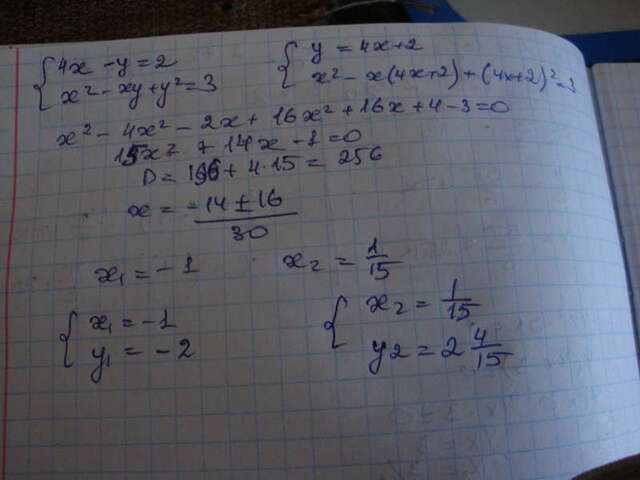 { 4x - y = 2
x² - xy + y² = 3
{ y = 4x+2
x² - x(4x+2) + (4x+2)² = 3
x² - 4x² - 2x + 16x² + 16x + 4 - 3 = 0
15x² + 14x - 1 = 0
D = 196 + 4·15 = 256
x = -14 ± 16 / 30
x₁ = -1
x₂ = 1/15
{ x₁ = -1
y₁ = -2
{ x₂ = 1/15
y2 = 2 4/15